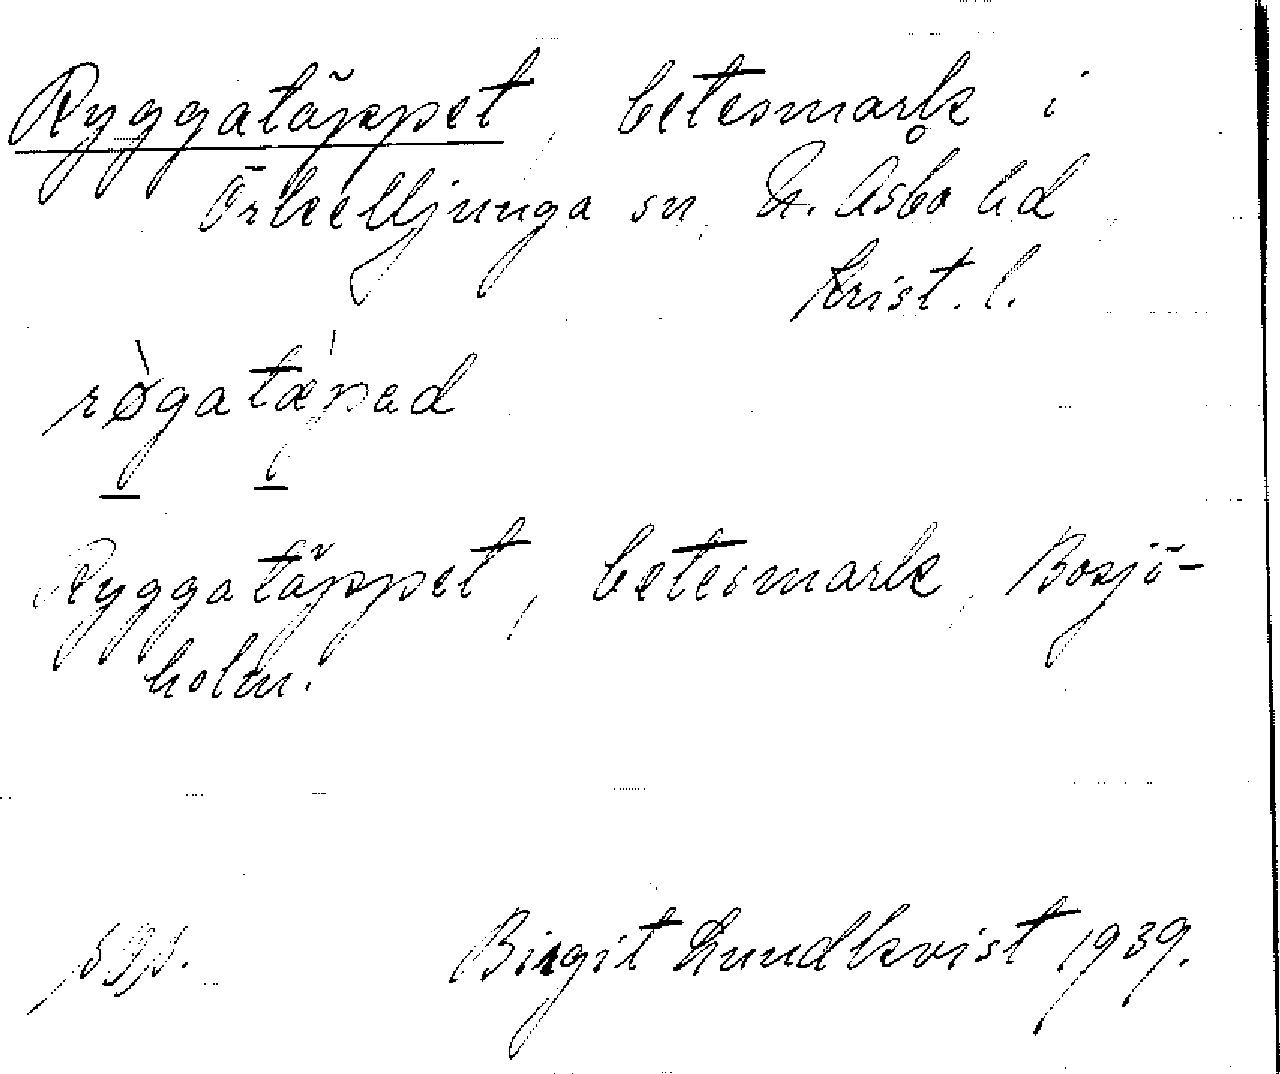 Ryggatäppet, betesmark i
Örkelljunga sn, N. Åsbo hd
Krist. l.
rø̀gatǽpad
Ryggatäppet, betesmark, Bosjö-
holm.
Birgit Lundkvist 1939.